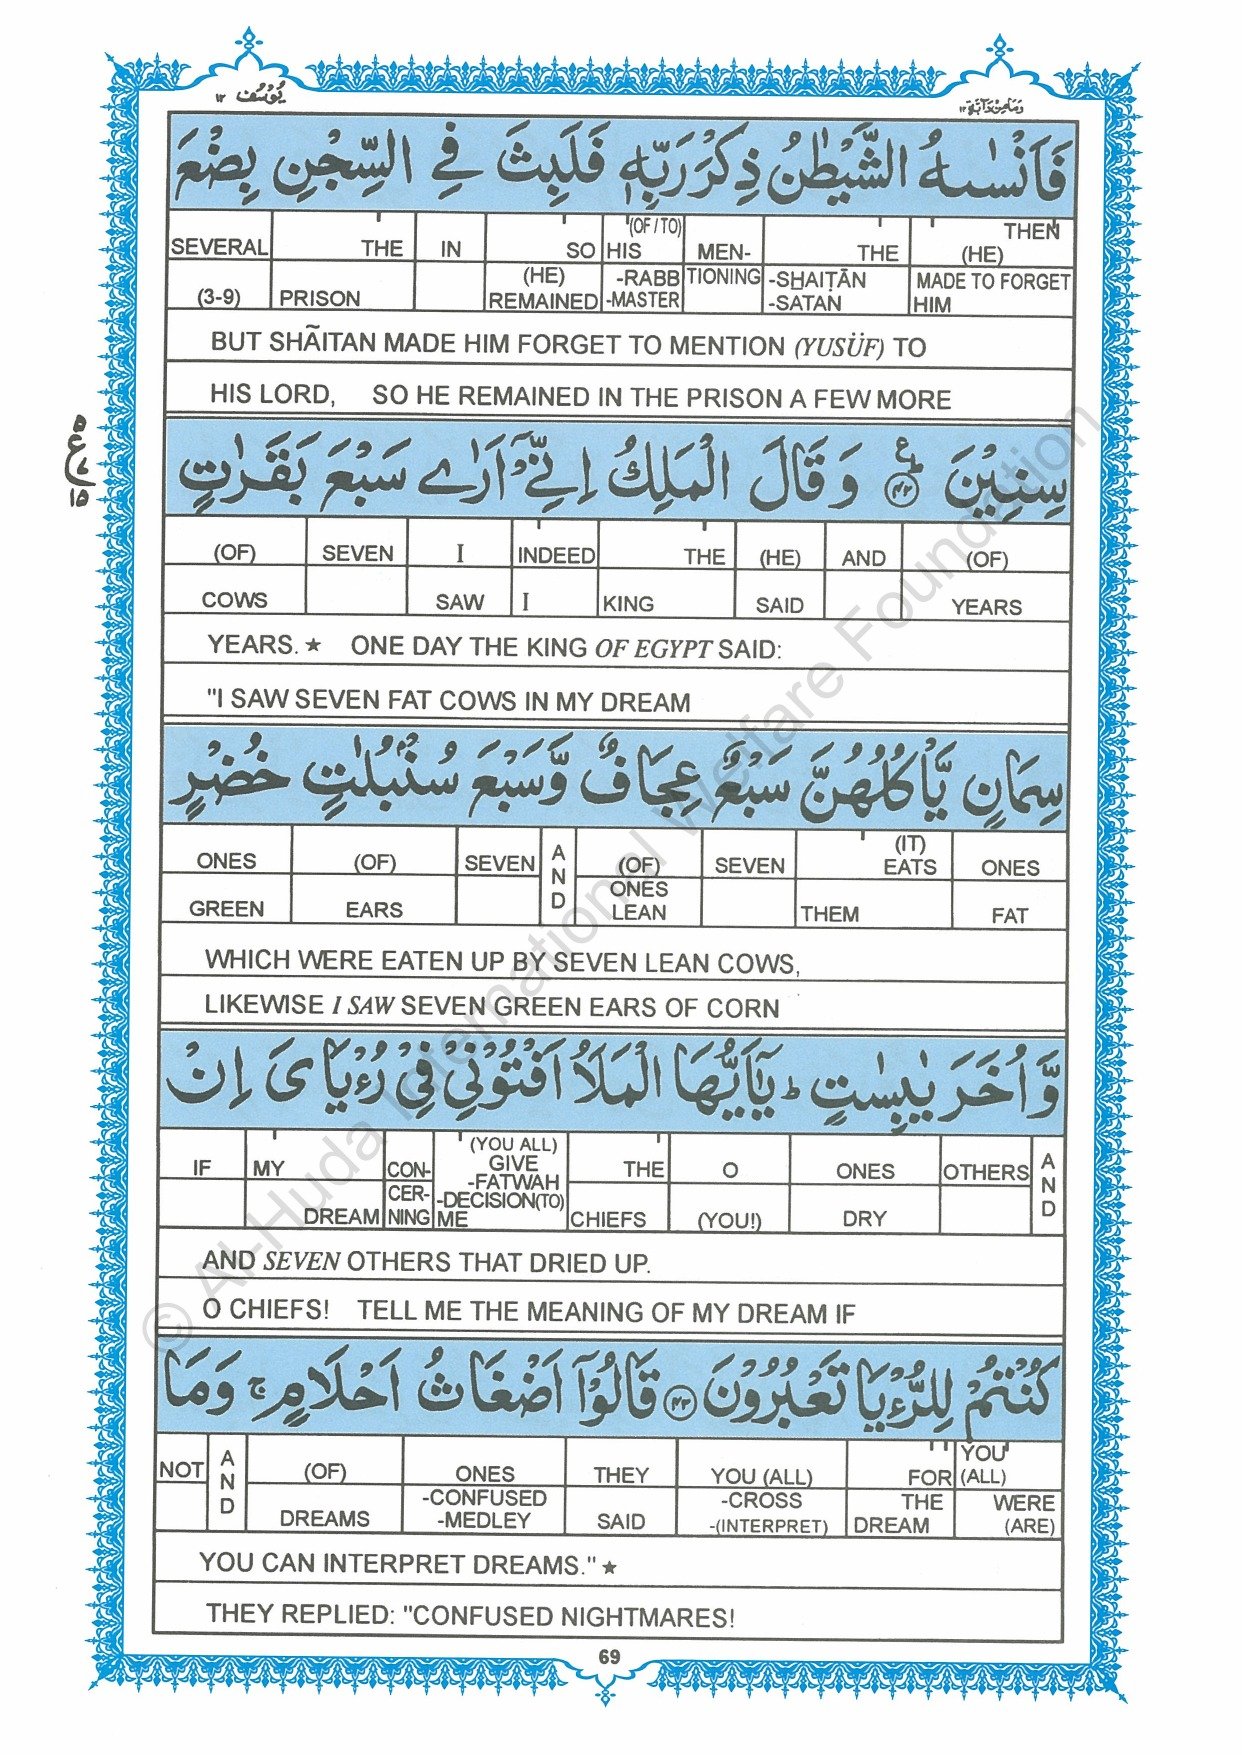 يُوْسُف ١٢
وَمَا مِنْ دَآبَّةٍ ١٢
فَاَنْسٰىهُ الشَّيْطٰنُ ذِكْرَ رَبِّهٖ فَلَبِثَ فِي السِّجْنِ بِضْعَ
SEVERAL THE IN SO HIS (OF/TO) MEN- THE THEN (HE)
(3-9) PRISON (HE) REMAINED -RABB -MASTER TIONING -SHAIṬĀN -SATAN MADE TO FORGET HIM
BUT SHÃITAN MADE HIM FORGET TO MENTION (YUSÜF) TO
HIS LORD, SO HE REMAINED IN THE PRISON A FEW MORE
٥
ع
٧
١٥
سِنِيْنَ ﴿٤٢﴾ ع وَقَالَ الْمَلِكُ اِنِّيْٓ اَرٰى سَبْعَ بَقَرٰتٍ
(OF) SEVEN I INDEED THE (HE) AND (OF)
COWS SAW I KING SAID YEARS
YEARS. ★ ONE DAY THE KING OF EGYPT SAID:
"I SAW SEVEN FAT COWS IN MY DREAM
سِمَانٍ يَّاْكُلُهُنَّ سَبْعٌ عِجَافٌ وَّسَبْعَ سُنْۢبُلٰتٍ خُضْرٍ
ONES (OF) SEVEN AND (OF) SEVEN (IT) EATS ONES
GREEN EARS ONES LEAN THEM FAT
WHICH WERE EATEN UP BY SEVEN LEAN COWS,
LIKEWISE I SAW SEVEN GREEN EARS OF CORN
وَّاُخَرَ يٰبِسٰتٍ ؕ يٰٓاَيُّهَا الْمَلَاُ اَفْتُوْنِيْ فِيْ رُءْيَايَ اِنْ
IF MY CON- (YOU ALL) GIVE -FATWAH THE O ONES OTHERS AND
DREAM CER- NING -DECISION(TO) ME CHIEFS (YOU!) DRY
AND SEVEN OTHERS THAT DRIED UP.
O CHIEFS! TELL ME THE MEANING OF MY DREAM IF
كُنْتُمْ لِلرُّءْيَا تَعْبُرُوْنَ ﴿٤٣﴾ قَالُوْٓا اَضْغَاثُ اَحْلَامٍ ۚ وَمَا
NOT AND (OF) ONES THEY YOU (ALL) FOR YOU (ALL)
DREAMS -CONFUSED -MEDLEY SAID -CROSS -(INTERPRET) THE DREAM WERE (ARE)
YOU CAN INTERPRET DREAMS." ★
THEY REPLIED: "CONFUSED NIGHTMARES!
69
© Al-Huda International Welfare Foundation